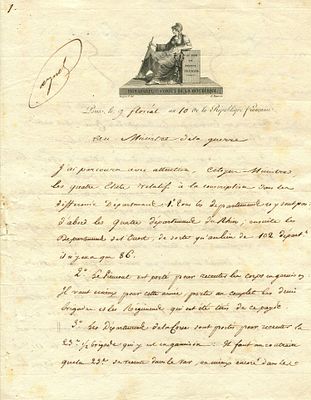 1.
BONAPARTE 1er CONSUL DE LA RÉPUBLIQUE
Paris, le 9 floréal an 10 de la République française
Au Ministre de la guerre
J'ai parcouru avec attention, Citoyen Ministre
les quatre Etats relatif à la conscription dans les
différens Départements. 1° Tous les départements n'y sont pas;
d'abord les quatre départements du Rhin, ensuite les
Départements de l'Ouest, de sorte qu'au lieu de 102 départ.
il n'y en a que 86.
2° Le Piémont est porté pour recruter les corps en garnison
Il vaut mieux pour cette année, porter au complet les demi
brigades et les Régiments qui ont été tirés de ce pays
3° Les Départements de la Corse sont portés pour recruter la
23e ½ brigade qui y est en garnison : Il faut au contraire
que la 23e se recrute dans le Var, ou mieux encore dans le